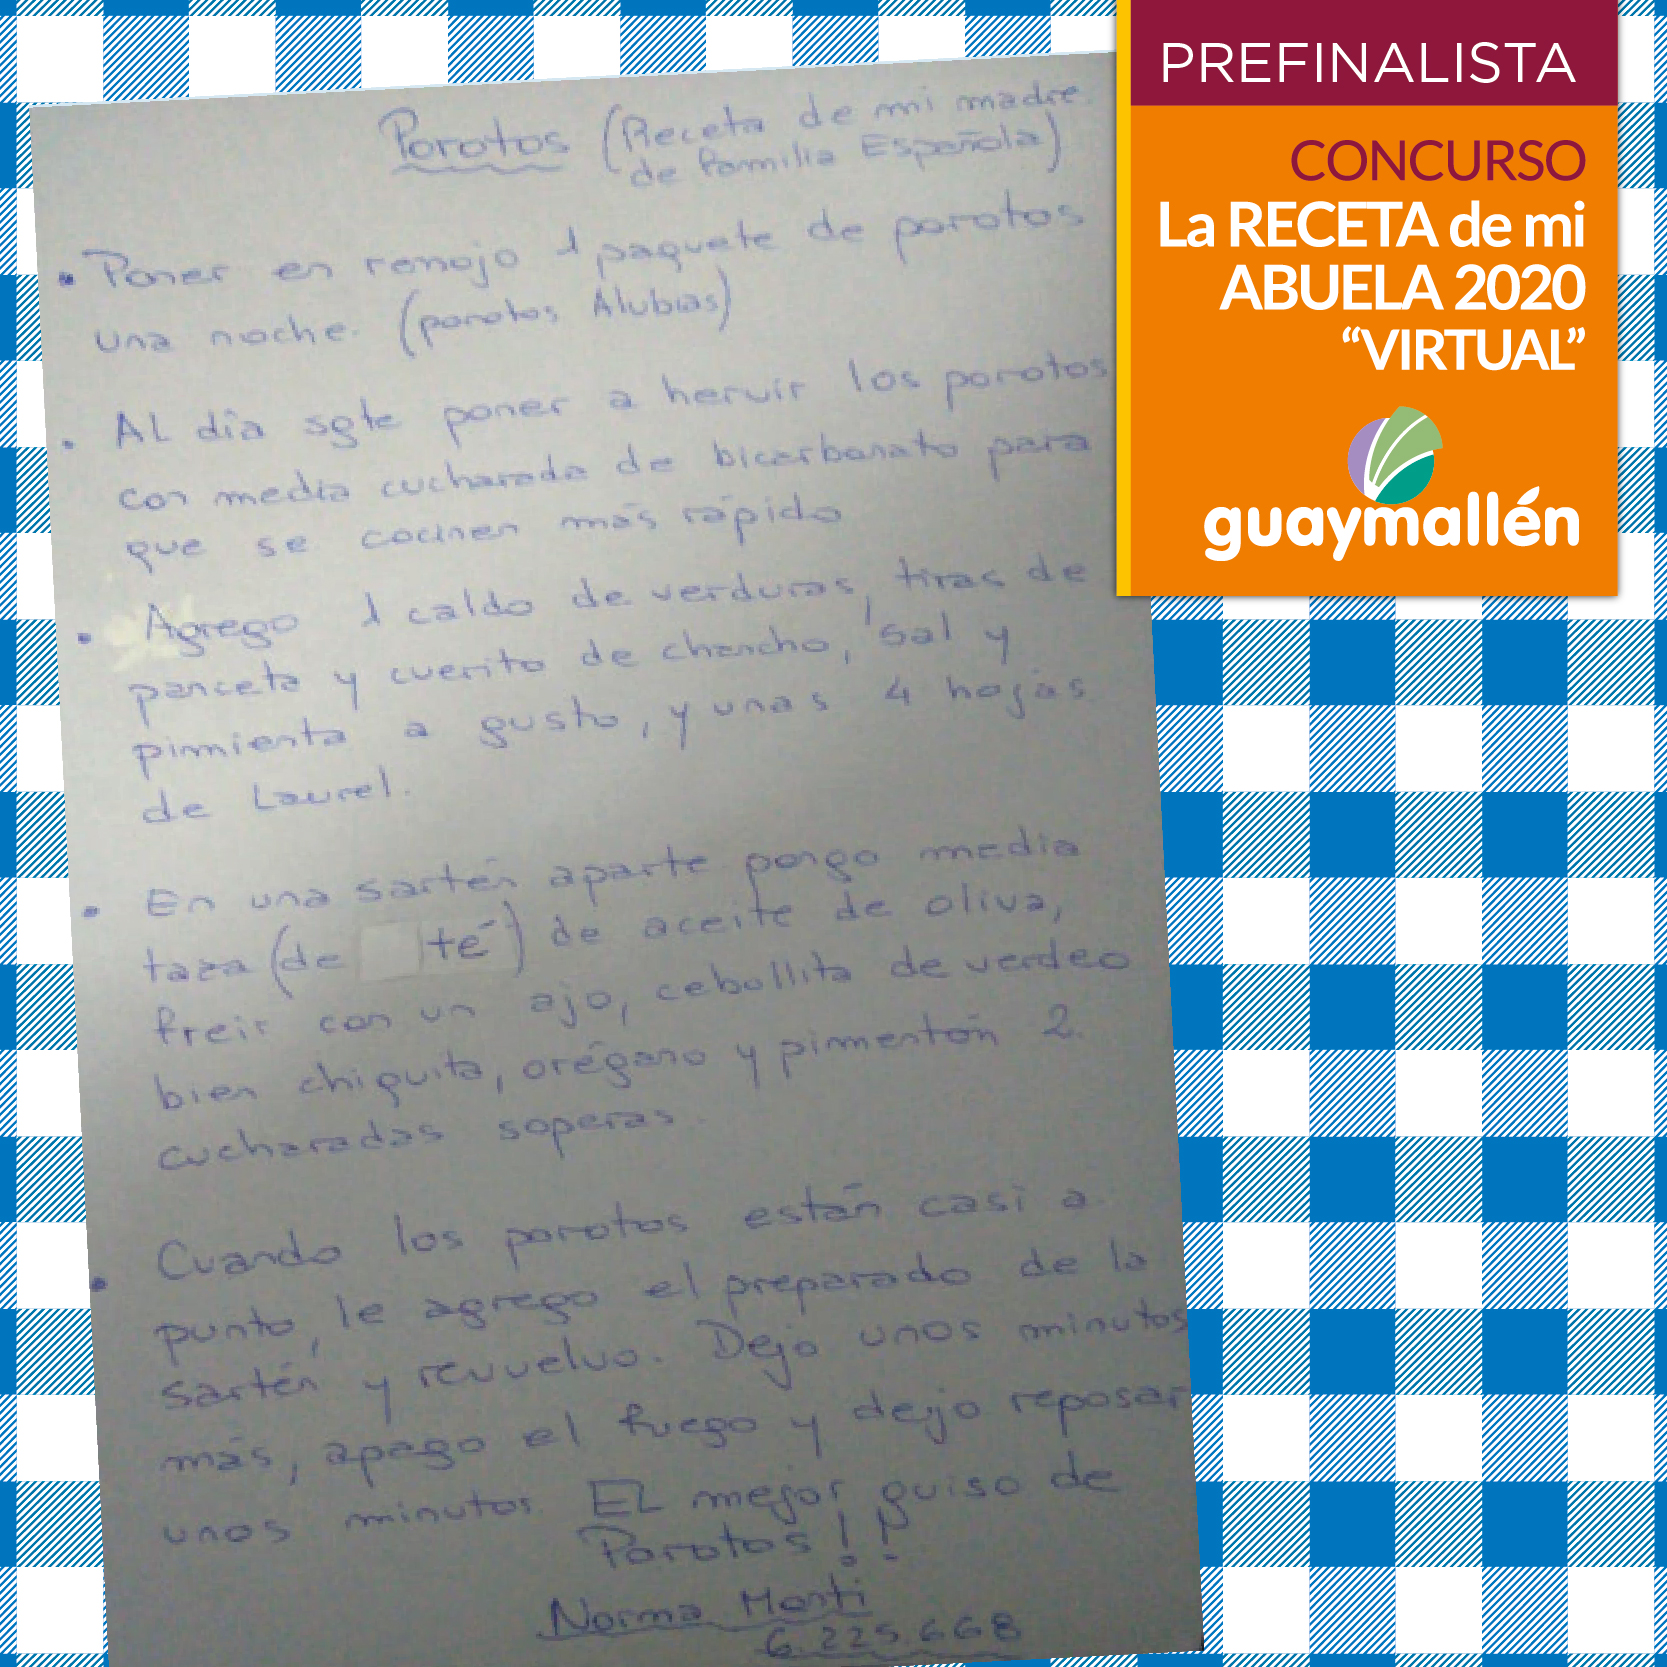 Porotos (Receta de mi madre
de familia Española)
• Poner en remojo 1 paquete de porotos
una noche. (porotos Alubias)
• AL día sgte poner a hervir los porotos
con media cucharada de bicarbonato para
que se cocinen más rápido
• Agrego 1 caldo de verduras, tiras de
panceta y cuerito de chancho, sal y
pimienta a gusto, y unas 4 hojas
de Laurel.
• En una sartén aparte pongo media
taza (de té) de aceite de oliva,
freir con un ajo, cebollita de verdeo
bien chiquita, orégano y pimentón 2
cucharadas soperas.
• Cuando los porotos están casi a
punto, le agrego el preparado de la
sartén y revuelvo. Dejo unos minutos
más, apago el fuego y dejo reposar
unos minutos. EL mejor guiso de
Porotos!!
Norma Monti
6.225.668
PREFINALISTA
CONCURSO
La RECETA de mi
ABUELA 2020
“VIRTUAL”
guaymallén